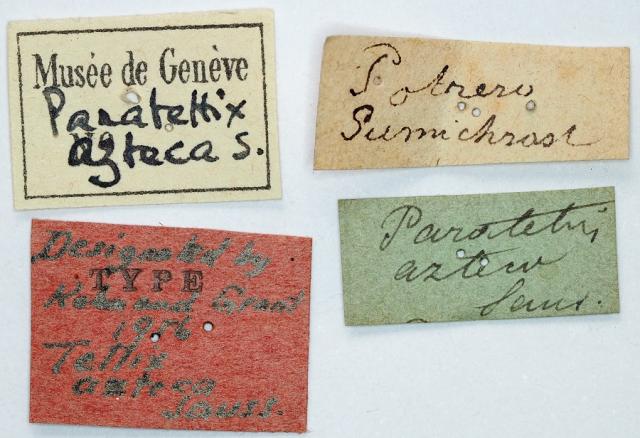 Musée de Genève
Paratettix
azteca S.
Potrero
Sumichrast
Designated by
TYPE
and Grant
1956
Tettix
azteca
Sauss.
Paratettix
azteca
Saus.